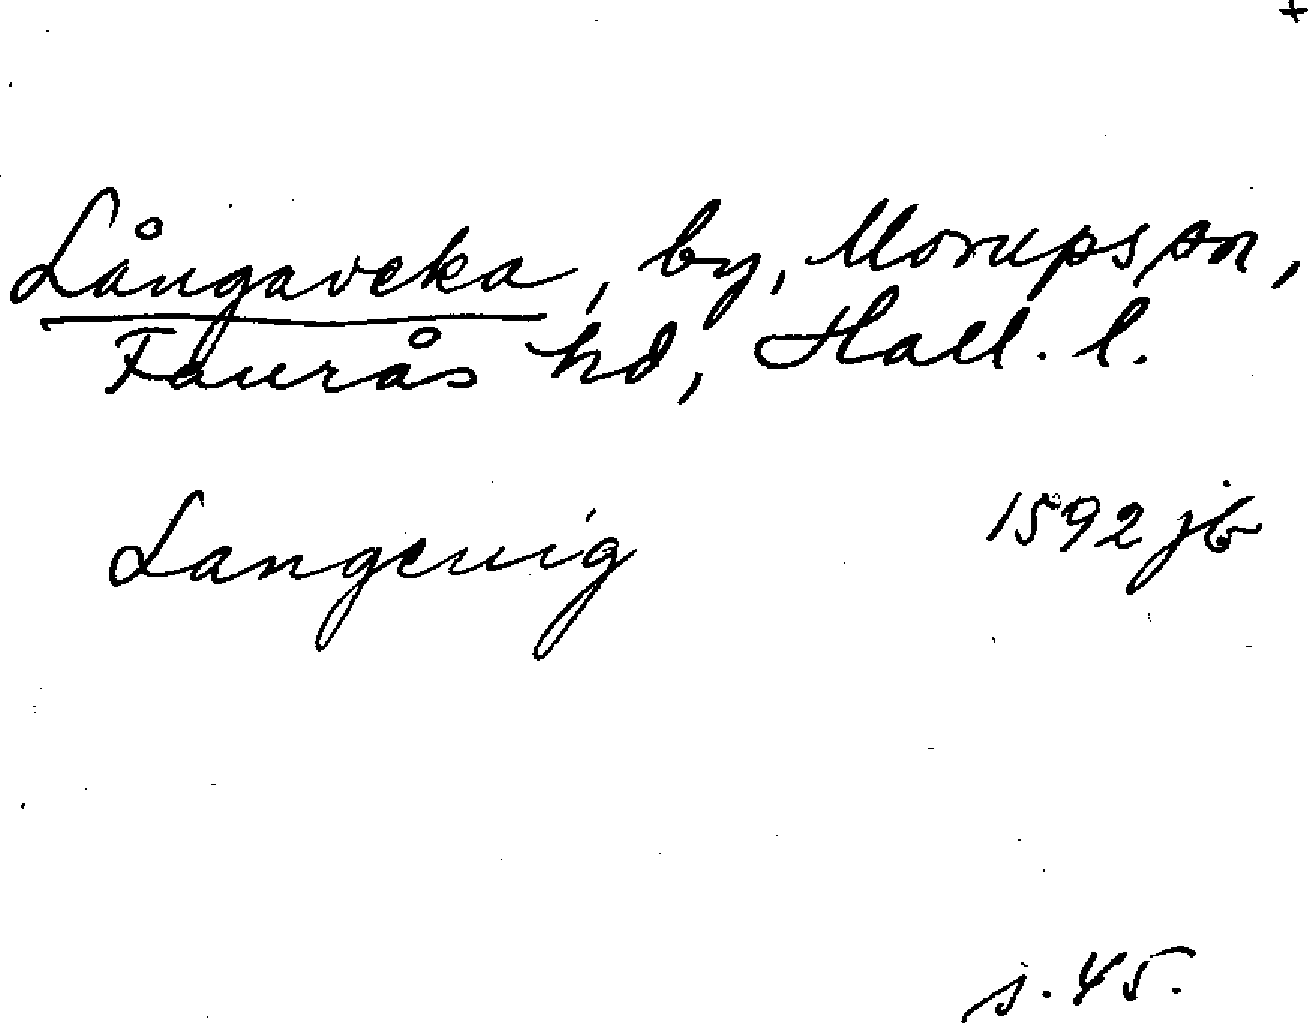 +
Långaveka, by, Morups sn,
Faurås hd, Hall. l.
Langeuig 1592 jb
s. 45.